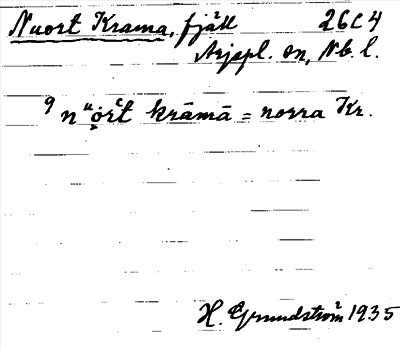 Nuort Krama, fjäll 26C4
Arjepl. sn, Nb. l.
9 nuo̭rt krāmā = norra Kr.
H. Grundström 1935